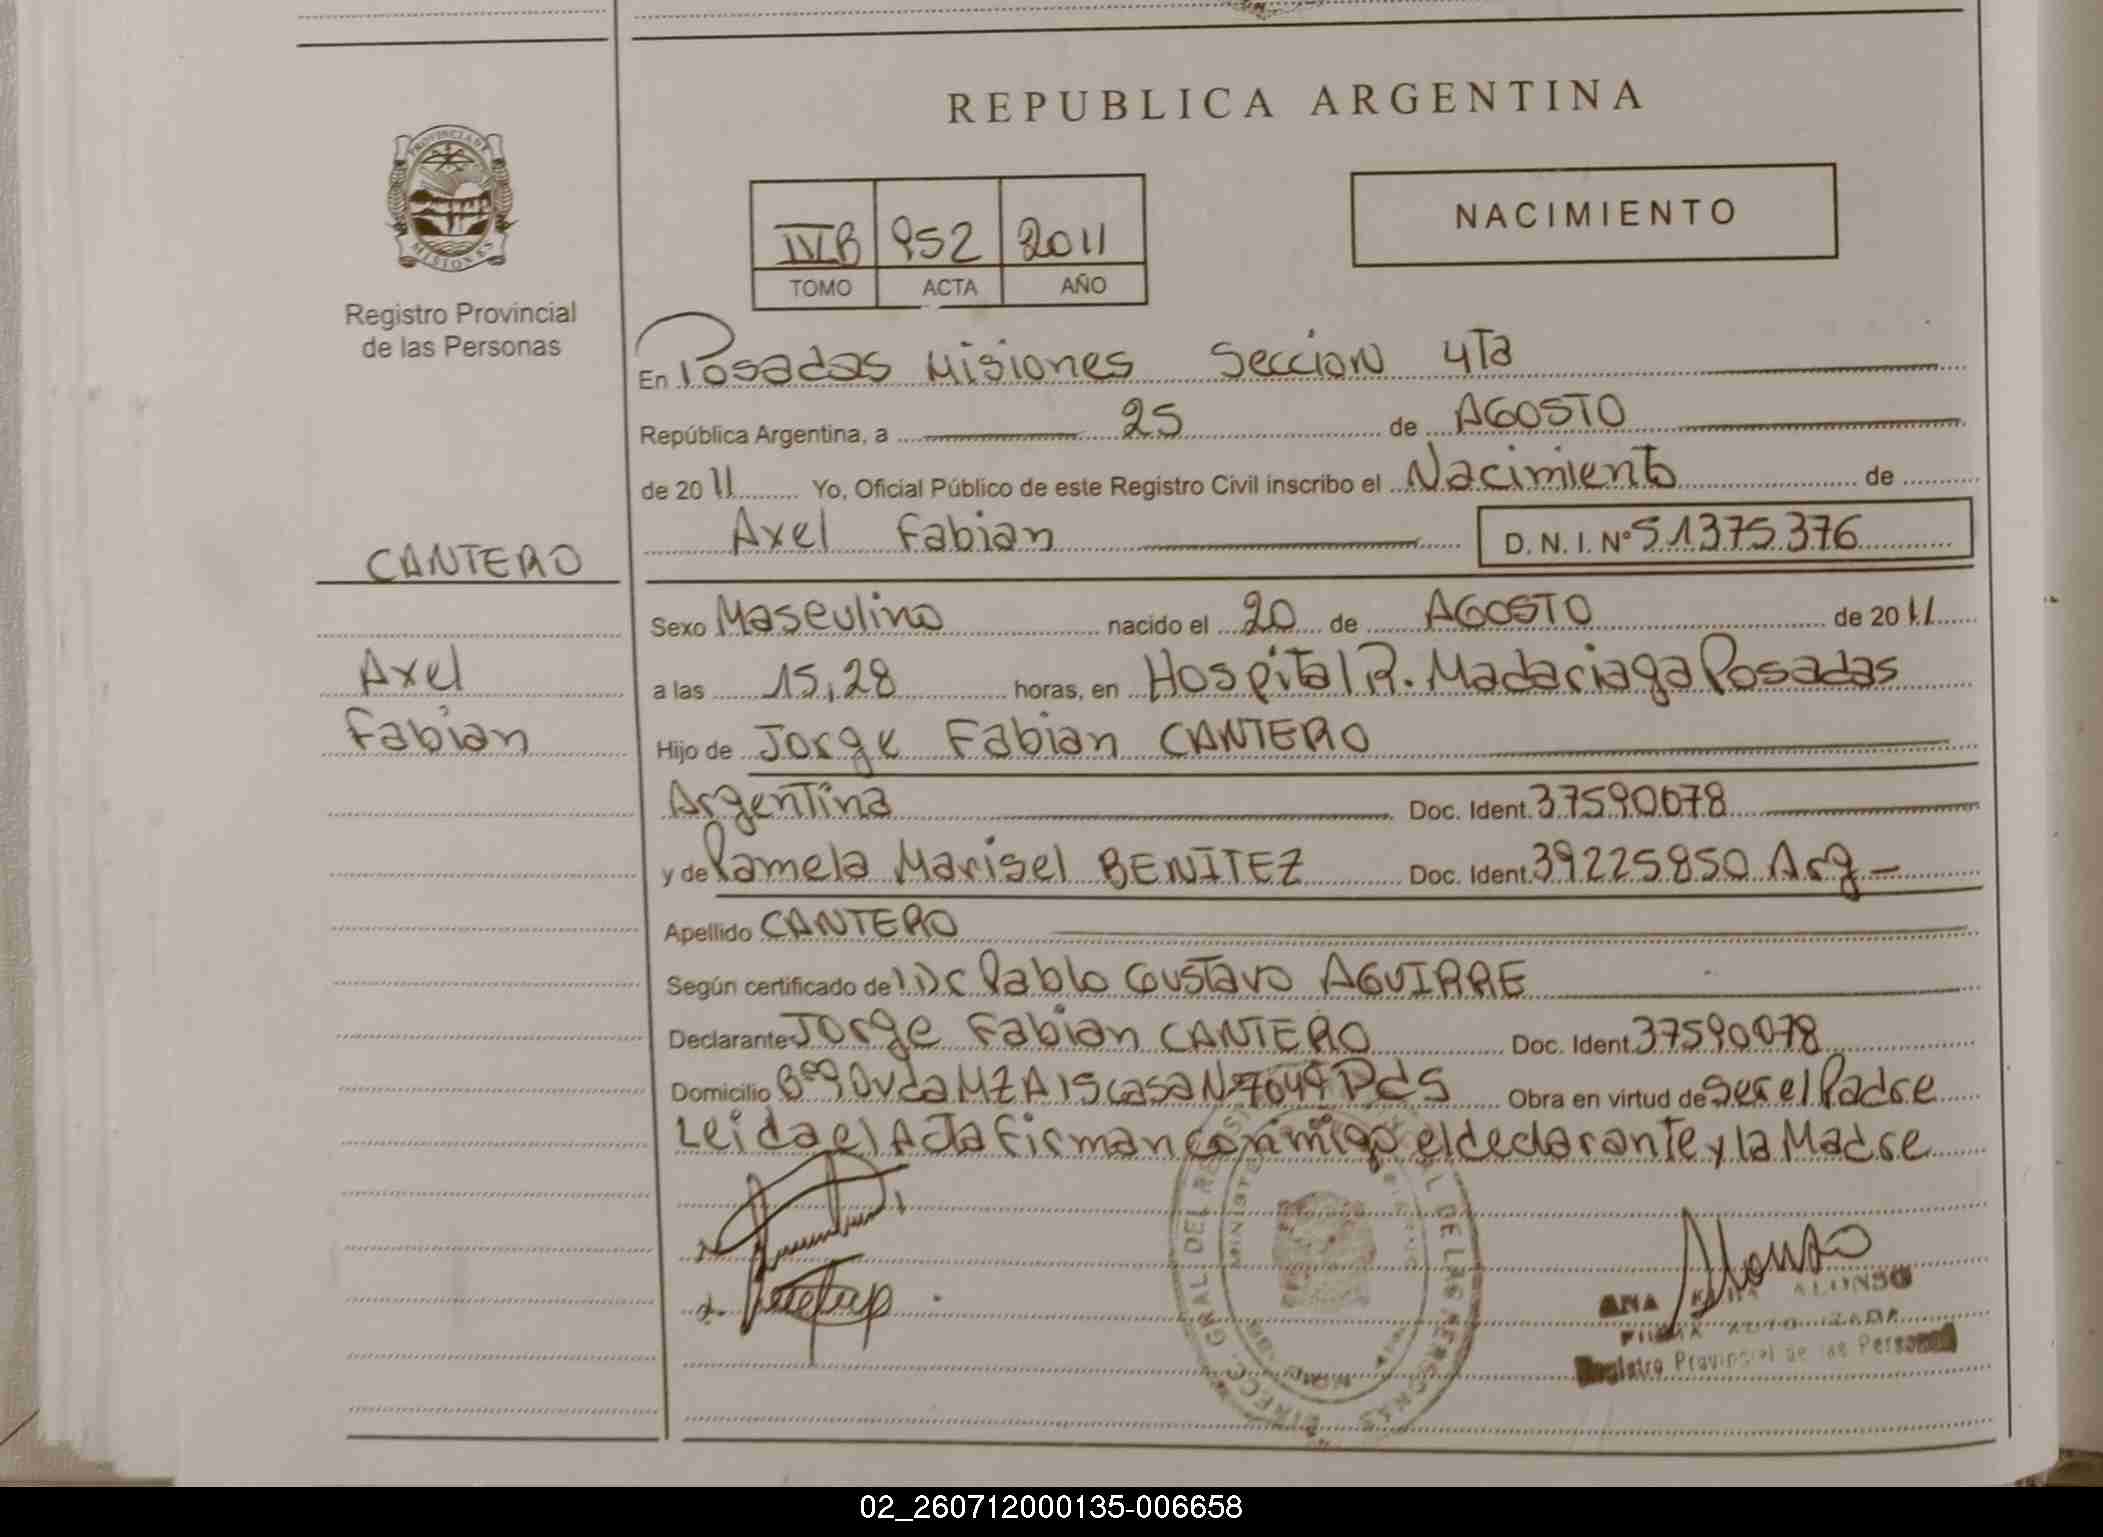 REPUBLICA ARGENTINA
PROVINCIA DE
MISIONES
Registro Provincial
de las Personas
IVB 952 2011
TOMO ACTA AÑO
NACIMIENTO
En Posadas Misiones Seccion 4Ta
República Argentina, a 25 de AGOSTO
de 2011 Yo, Oficial Público de este Registro Civil inscribo el Nacimiento de
Axel Fabian D.N.I. Nº 51375376
CANTERO
Axel
Fabian
Sexo Masculino nacido el 20 de AGOSTO de 2011
a las 15,28 horas, en Hospital R. Madariaga Posadas
Hijo de Jorge Fabian CANTERO
Argentina Doc. Ident. 37590078
y de Pamela Marisel BENITEZ Doc. Ident. 39225850 Arg
Apellido CANTERO
Según certificado de Pablo Gustavo AGUIRRE
Declarante Jorge Fabian CANTERO Doc. Ident. 37590078
Domicilio MZA 15 casa Nº 7049 PdS Obra en virtud de ser el Padre
Leida el Acta Firman conmigo el declarante y la Madre
ANA ALONSO
FIRMA AUTORIZADA
Registro Provincial de las Personas
02_260712000135-006658